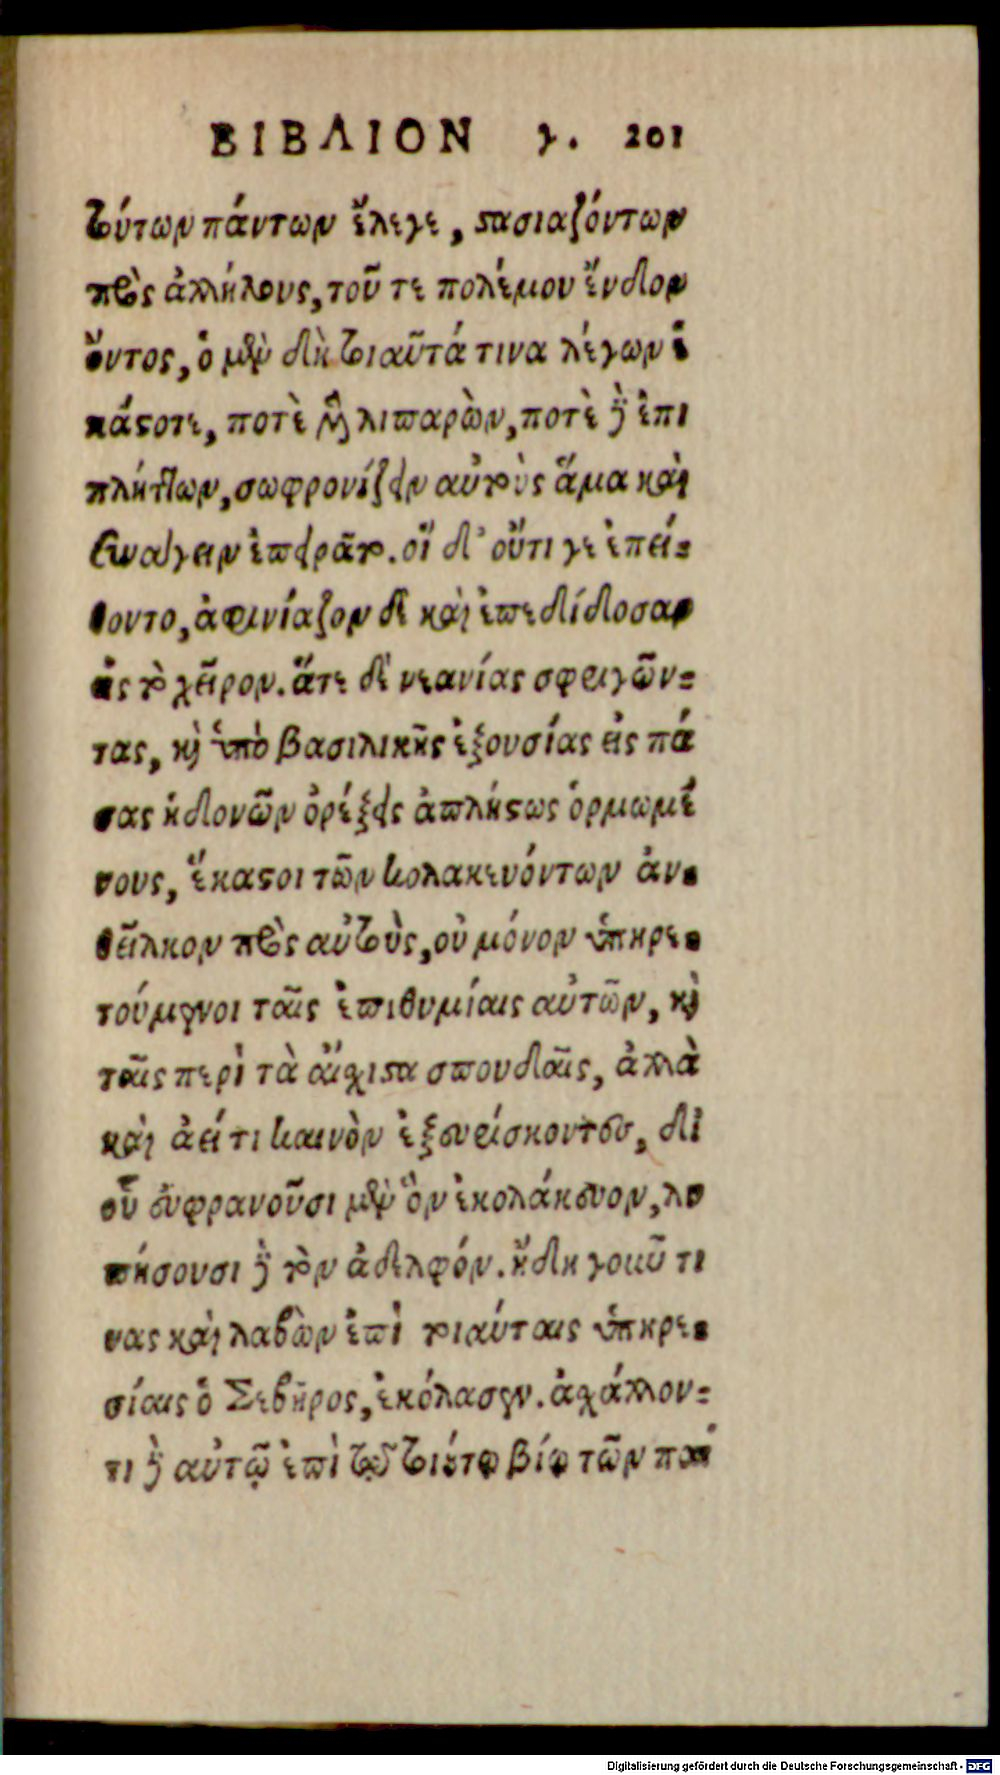 ΒΙΒΛΙΟΝ γ. 201
τούτων πάντων ἔλεγε, στασιαζόντων
πρὸς ἀλλήλους, τοῦ τε πολέμου ἔνδον
ὄντος, ὁ μὲν δὴ τοιαῦτά τινα λέγων ἑ
κάστοτε, ποτὲ μὲν λιπαρῶν, ποτὲ δὲ ἐπι
πλήττων, σωφρονίζειν αὐτοὺς ἅμα καὶ
συνάγειν ἐπειρᾶτο. οἵ δ' οὔτι γε ἐπεί-
θοντο, ἀφηνίαζον δὲ καὶ ἐπεδίδοσαν
εἰς τὸ χεῖρον. ἅτε δὲ νεανίας σφριγῶν-
τας, καὶ ὑπὸ βασιλικῆς ἐξουσίας εἰς πά
σας ἡδονῶν ὀρέξεις ἀπλήστως ὁρμωμέ
νους, ἕκαστοι τῶν κολακευόντων ἀν-
θεῖλκον πρὸς αὑτοὺς, οὐ μόνον ὑπηρε-
τούμενοι ταῖς ἐπιθυμίαις αὐτῶν, καὶ
ταῖς περὶ τὰ αἴσχιστα σπουδαῖς, ἀλλὰ
καὶ ἀεί τι καινὸν ἐξευρίσκοντες, δι
οὗ εὐφρανοῦσι μὲν ὃν ἐκολάκευον, λυ
πήσουσι δὲ τὸν ἀδελφόν. ἤδη γοῦν τι
νας καὶ λαβὼν ἐπὶ τοιαύταις ὑπηρε-
σίαις ὁ Σεβῆρος, ἐκόλασεν. ἀσχάλλον-
τι δὲ αὐτῷ ἐπὶ τῷ τοιούτῳ βίῳ τῶν παί
Digitalisierung gefördert durch die Deutsche Forschungsgemeinschaft - DFG